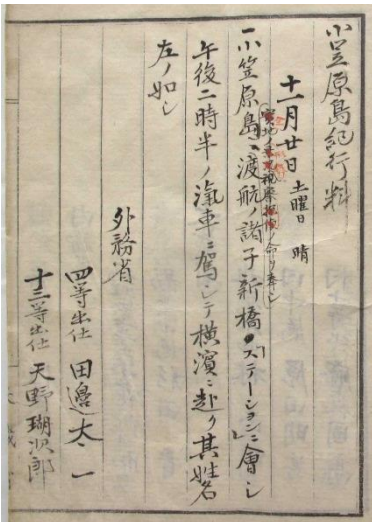 小笠原島紀行料
十一月廿日 土曜日 晴
一小笠原島ニ渡航ノ諸子新橋ノステーションニ會シ
實地視察ノ命ヲ奉シ
午後二時半ノ滊車ニ駕シテ橫濱ニ赴ク其姓名
左ノ如シ
外務省
四等出仕 田邊太一
十二等出仕 天野瑚次郎